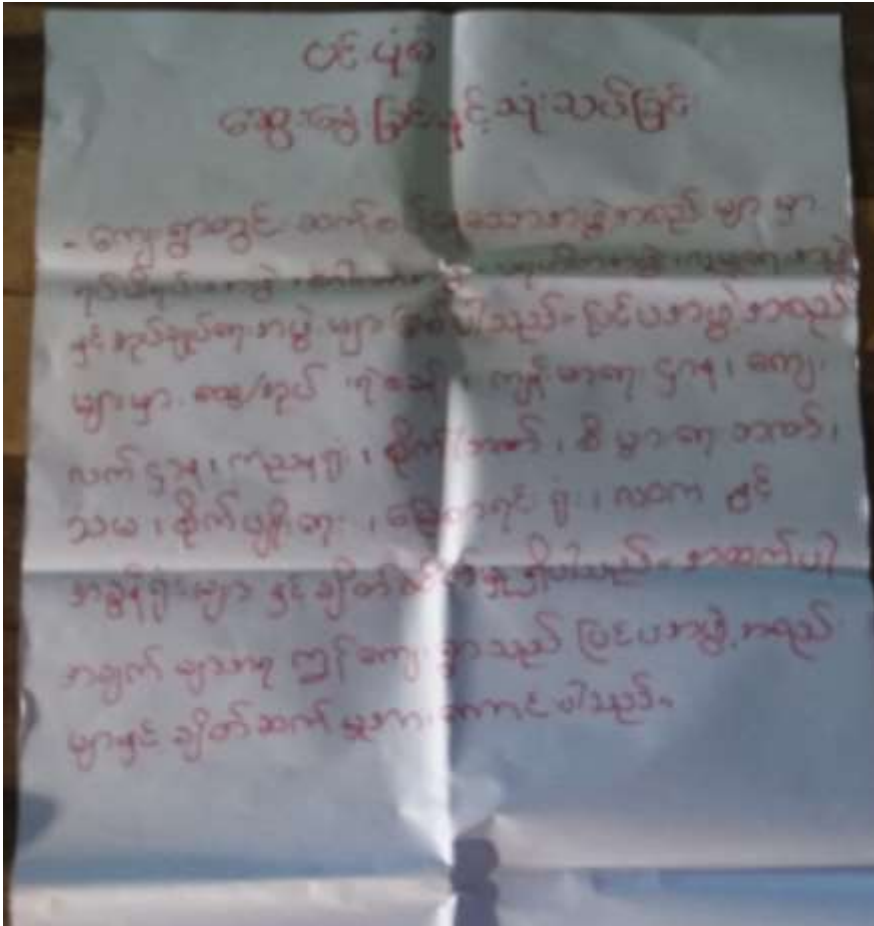 ဗင်းပုံစံ
ဆွေးနွေးခြင်းနှင့်သုံးသပ်ခြင်း
- ကျေးရွာတွင်း ဆက်စပ်နေသောအဖွဲ့အစည်း များ မှာ
ရပ်မိရပ်ဖအဖွဲ့ ၊ လူမှုရေးအဖွဲ့
နှင့်အုပ်ချုပ်ရေးအဖွဲ့ များ ဖြစ်ပါသည်။ ပြင်ပအဖွဲ့အစည်း
များမှာ ထွေ/အုပ် ၊ ရဲစခန်း ၊ ကျန်းမာရေး ဌာန ၊ ကျေး
လက်ဌာန ၊ ပညာရေးရုံး ၊ စိုက်/ဘဏ် ၊ စီးပွားရေး ဘဏ် ၊
သမ ၊ စိုက်ပျိုးရေး ၊ မြေစာရင်းရုံး ၊ လဝက နှင့်
အခွန်ရုံးများ နှင့် ချိတ်ဆက်မှု ရှိပါသည်။ အထက်ပါ
အချက် များအရ ဤကျေးရွာသည် ပြင်ပအဖွဲ့အစည်း
များနှင့် ချိတ်ဆက် မှုအားကောင်းပါသည်။